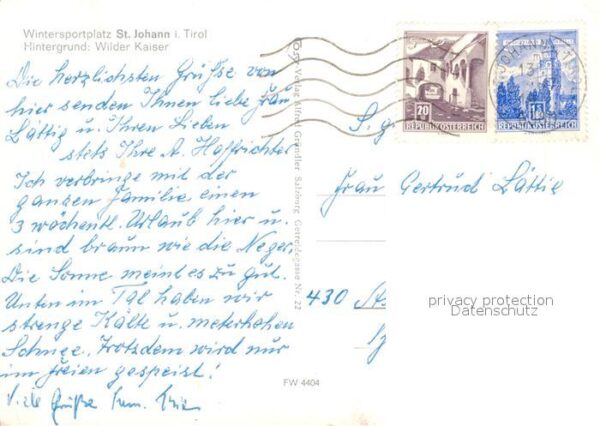 Wintersportplatz St. Johann i. Tirol
Hintergrund: Wilder Kaiser
Die herzlichsten Grüße von
hier senden Ihnen liebe Frau
Lättig u. Ihren Lieben
stets Ihre A. Haffrichter
Ich verbringe mit der
ganzen Familie einen
3 wöchentl. Urlaub hier u.
sind braun wie die Neger.
Die Sonne meint es zu gut.
Unten im Tal haben wir
strenge Kälte u. meterhohen
Schnee. Trotzdem wird nur
im Freien gespeist!
Viele Grüße
Verlag Alfred Gründler Salzburg Getreidegasse Nr. 22
FW 4404
20
REPUBLIK ÖSTERREICH
REPUBLIK ÖSTERREICH
13
S. g.
Frau Gertrud Lättig
430
privacy protection
Datenschutz